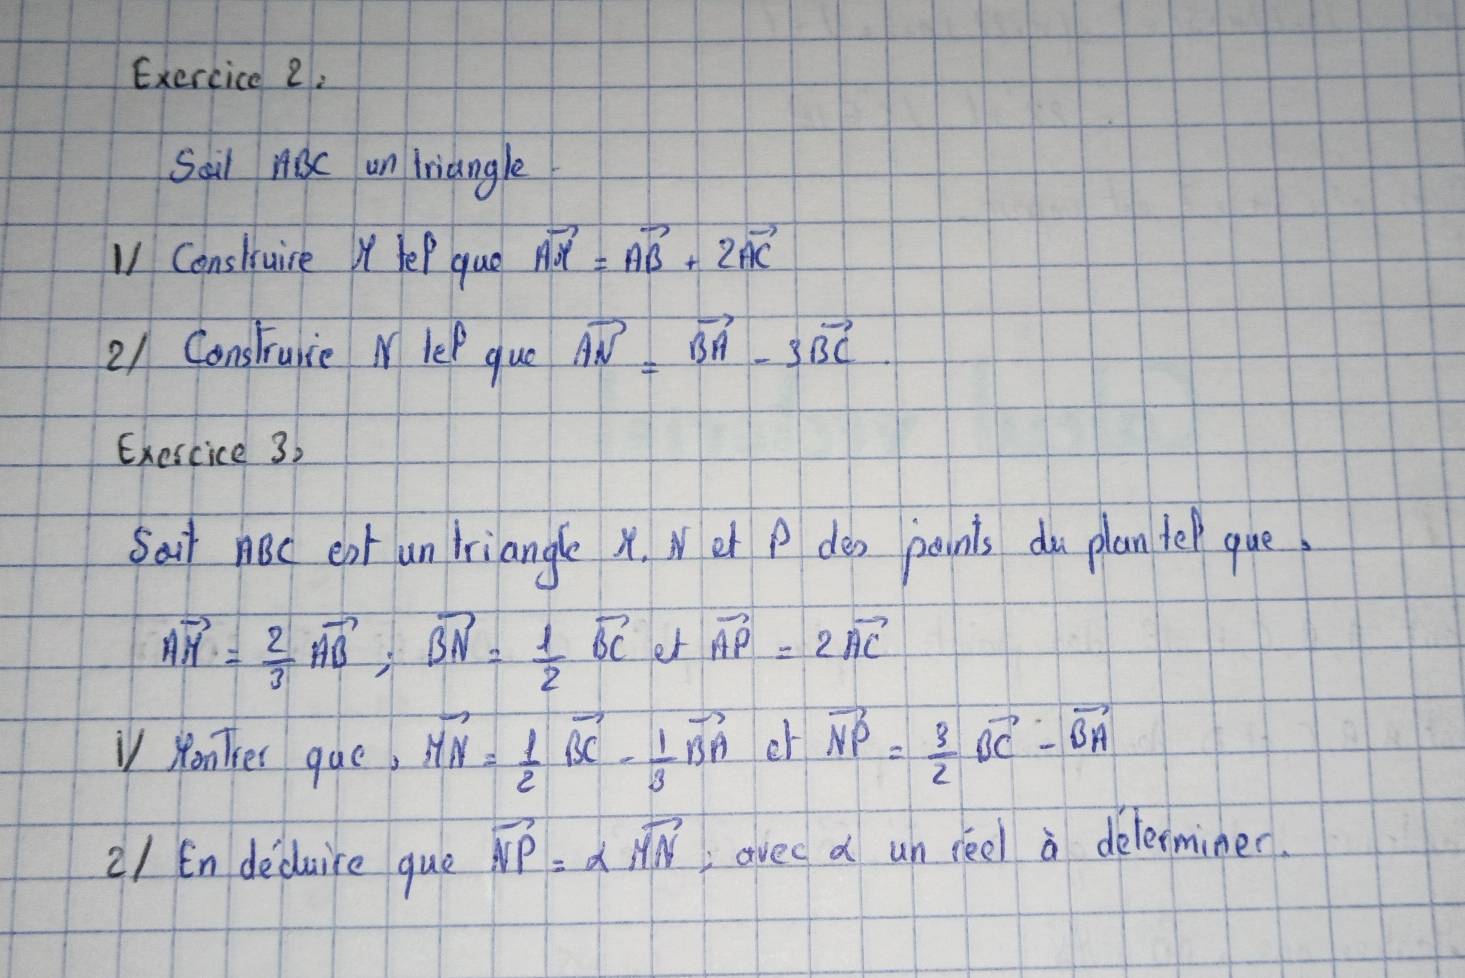 Exercice 2:
Soit ABC un triangle.
1/ Construire M tel que $\overrightarrow{AM} = \overrightarrow{AB} + 2\overrightarrow{AC}$
2/ Construire N tel que $\overrightarrow{AN} = \overrightarrow{BA} - 3\overrightarrow{BC}$.
Exercice 3:
Soit ABC est un triangle M, N et P des points du plan tel que:
$\overrightarrow{AM} = \frac{2}{3}\overrightarrow{AB}$ ; $\overrightarrow{BN} = \frac{1}{2}\overrightarrow{BC}$ et $\overrightarrow{AP} = 2\overrightarrow{AC}$
1/ Montrer que: $\overrightarrow{MN} = \frac{1}{2}\overrightarrow{BC} - \frac{1}{3}\overrightarrow{BA}$ et $\overrightarrow{NP} = \frac{3}{2}\overrightarrow{BC} - \overrightarrow{BA}$
2/ En déduire que $\overrightarrow{NP} = \alpha\overrightarrow{MN}$ ; avec α un réel à déterminer.